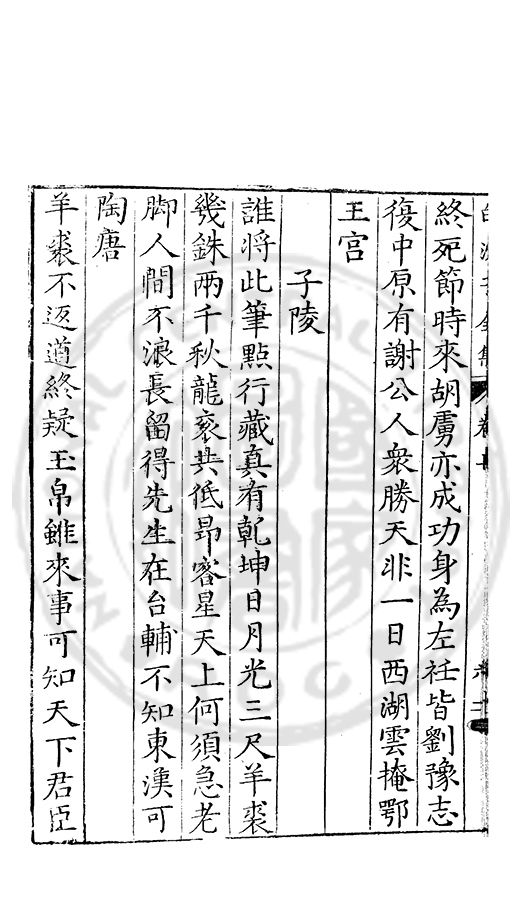 白沙子全集 卷十
終死節時來胡虜亦成功身為左衽皆劉豫志
復中原有謝公人衆勝天非一日西湖雲掩鄂
王宫
子陵
誰將此筆點行藏真有乾坤日月光三尺羊裘
幾銖兩千秋龍衮共低昂客星天上何須急老
脚人間不浪長留得先生在台輔不知東漢可
陶唐
羊裘不返道終疑玉帛雖來事可知天下君臣